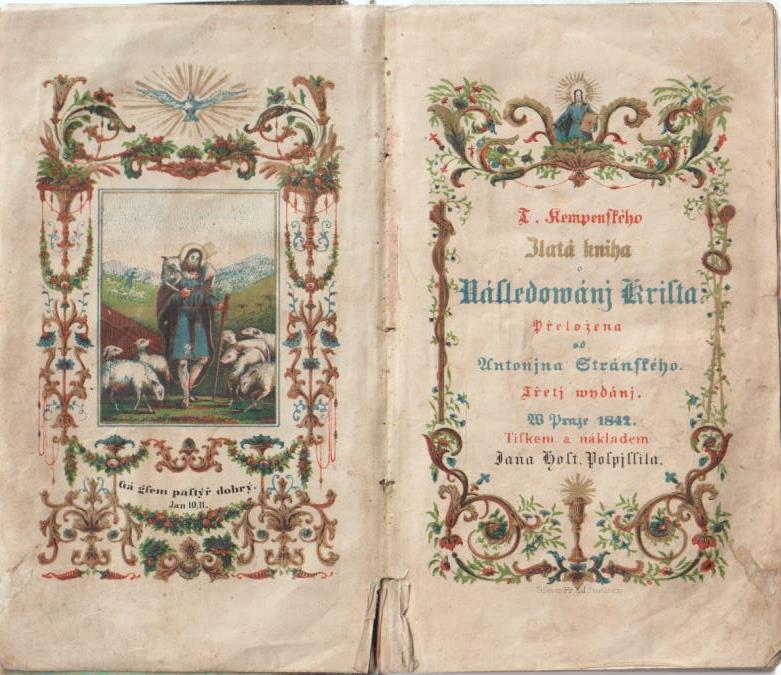 Gá gsem pastýř dobrý.
Jan 10,11.
T. Kempenského
Zlatá kniha
o
Následowánj Krista
Přeložena
od
Antonjna Stránského.
Třetj wydánj.
W Praze 1842.
Tiskem a nákladem
Jana Host. Pospjssila.
Fr. Ed.